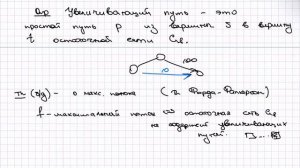 Опр Увеличивающий путь - это
простой путь p из вершины s в вершину
t остаточной сети Gf.
100
10
Th (б/д) - о макс. потоке (т. Форда-Фалкерсона)
f - максимальный поток ⇔ остаточная сеть Gf
не содержит увеличивающих
путей.